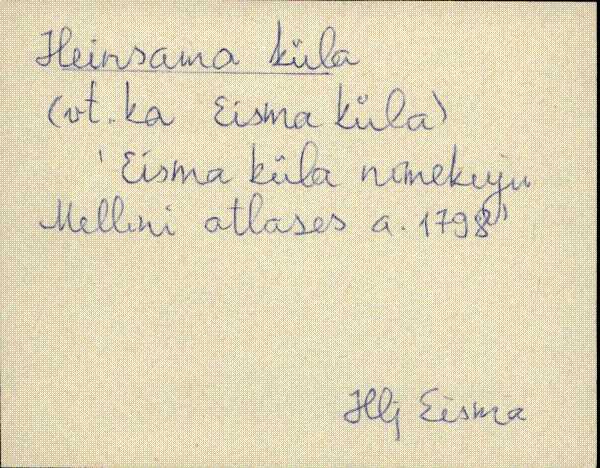 Heinsama küla
(vt. ka Eisma küla)
'Eisma küla nimekuju
Mellini atlases a. 1798'
Hlj Eisma